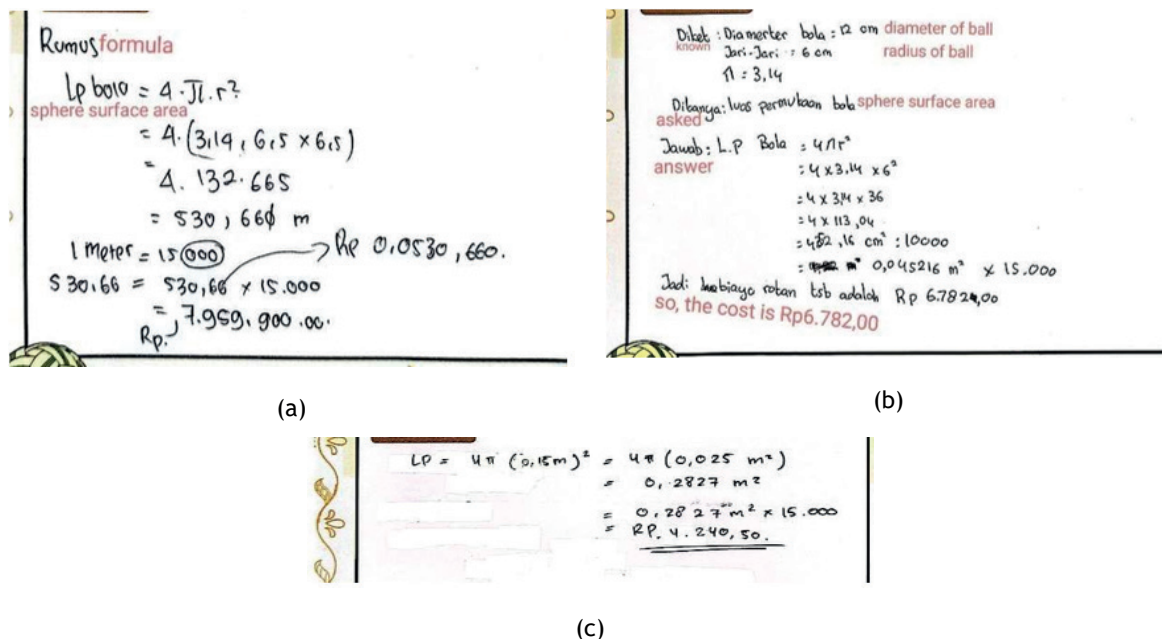 Rumus formula
Lp bola = 4.π.r²
sphere surface area
= 4.(3,14, 6,5 x 6,5)
= 4.132.665
= 530,660 m
1 meter = 15 000
Rp 0,0530,660.
530,66 = 530,66 x 15.000
= 7.959.900.00.
Rp.
(a)
Diket : Diamerter bola : 12 cm diameter of ball
known
Jari-Jari : 6 cm radius of ball
π : 3,14
Ditanya : luas permukaan bola sphere surface area
asked
Jawab : L.P Bola = 4πr²
answer
= 4 x 3.14 x 6²
= 4 x 3,14 x 36
= 4 x 113,04
= 452,16 cm² : 10000
= m² 0,045216 m² x 15.000
Jadi biaya rotan tsb adalah Rp 6.782,00
so, the cost is Rp6.782,00
(b)
LP = 4π (0,15m)² = 4π (0,025 m²)
= 0,2827 m²
= 0,2827 m² x 15.000
= RP. 4.240,50.
(c)